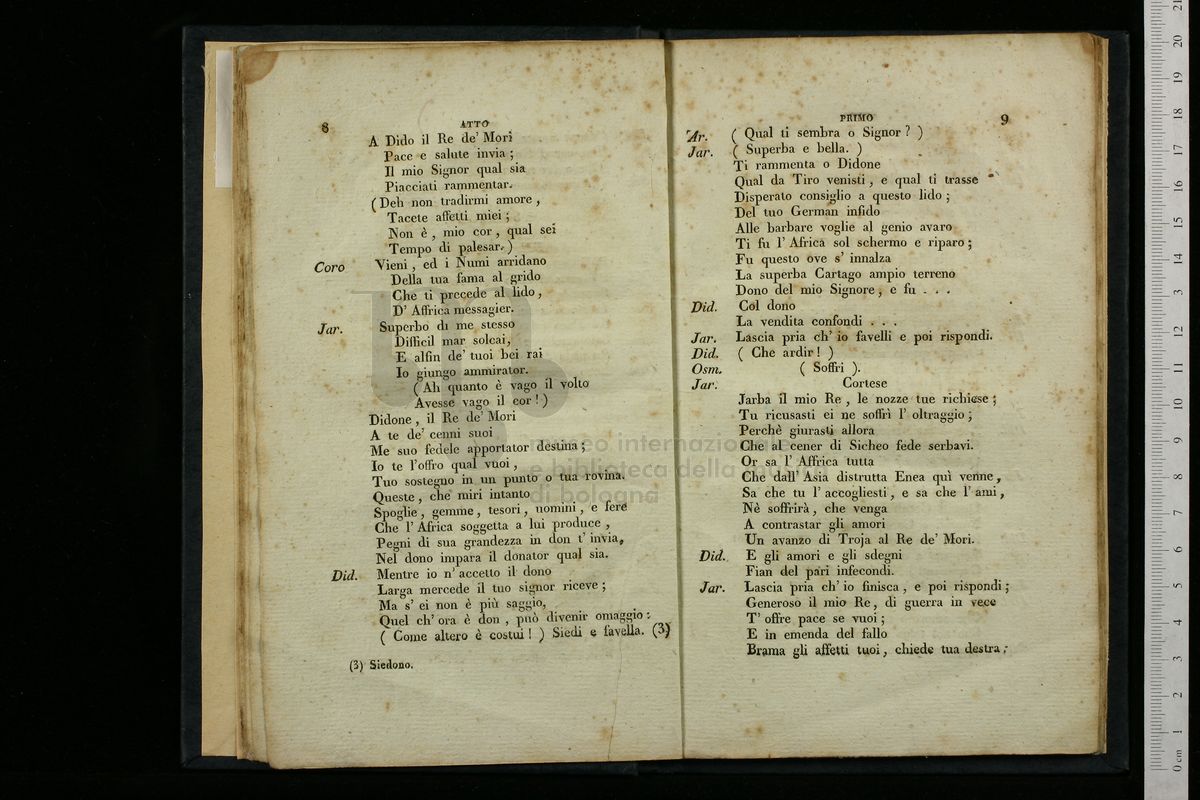 8
ATTO
A Dido il Re de' Mori
Pace e salute invia ;
Il mio Signor qual sia
Piacciati rammentar.
( Deh non tradirmi amore ,
Tacete affetti miei ;
Non è , mio cor , qual sei
Tempo di palesar. )
Coro Vieni , ed i Numi arridano
Della tua fama al grido
Che ti precede al lido ,
D' Affrica messagier.
Jar. Superbo di me stesso
Difficil mar solcai,
E alfin de' tuoi bei rai
Io giungo ammirator.
( Ah quanto è vago il volto
Avesse vago il cor ! )
Didone , il Re de' Mori
A te de' cenni suoi
Me suo fedele apportator destina ;
Io te l'offro qual vuoi ,
Tuo sostegno in un punto o tua rovina.
Queste , che miri intanto
Spoglie , gemme , tesori , uomini , e fere
Che l' Africa soggetta a lui produce ,
Pegni di sua grandezza in don t' invia,
Nel dono impara il donator qual sia.
Did. Mentre io n' accetto il dono
Larga mercede il tuo signor riceve ;
Ma s' ei non è più saggio,
Quel ch' ora è don , può divenir omaggio :
( Come altero è costui ! ) Siedi e favella. (3)
(3) Siedono.
PRIMO
9
Ar. ( Qual ti sembra o Signor ? )
Jar. ( Superba e bella. )
Ti rammenta o Didone
Qual da Tiro venisti , e qual ti trasse
Disperato consiglio a questo lido ;
Del tuo German infido
Alle barbare voglie al genio avaro
Ti fu l' Africa sol schermo e riparo ;
Fu questo ove s' innalza
La superba Cartago ampio terreno
Dono del mio Signore , e fu . . .
Did. Col dono
La vendita confondi . . .
Jar. Lascia pria ch' io favelli e poi rispondi.
Did. ( Che ardir ! )
Osm. ( Soffri ).
Jar. Cortese
Jarba il mio Re , le nozze tue richiese ;
Tu ricusasti ei ne soffrì l' oltraggio ;
Perchè giurasti allora
Che al cener di Sicheo fede serbavi.
Or sa l' Affrica tutta
Che dall' Asia distrutta Enea quì venne ,
Sa che tu l' accogliesti , e sa che l' ami ,
Nè soffrirà , che venga
A contrastar gli amori
Un avanzo di Troja al Re de' Mori.
Did. E gli amori e gli sdegni
Fian del pari infecondi.
Jar. Lascia pria ch' io finisca , e poi rispondi ;
Generoso il mio Re , di guerra in vece
T' offre pace se vuoi ;
E in emenda del fallo
Brama gli affetti tuoi , chiede tua destra ;
museo internazionale
e biblioteca della musica
di bologna
0 cm 1 2 3 4 5 6 7 8 9 10 11 12 13 14 15 16 17 18 19 20 21